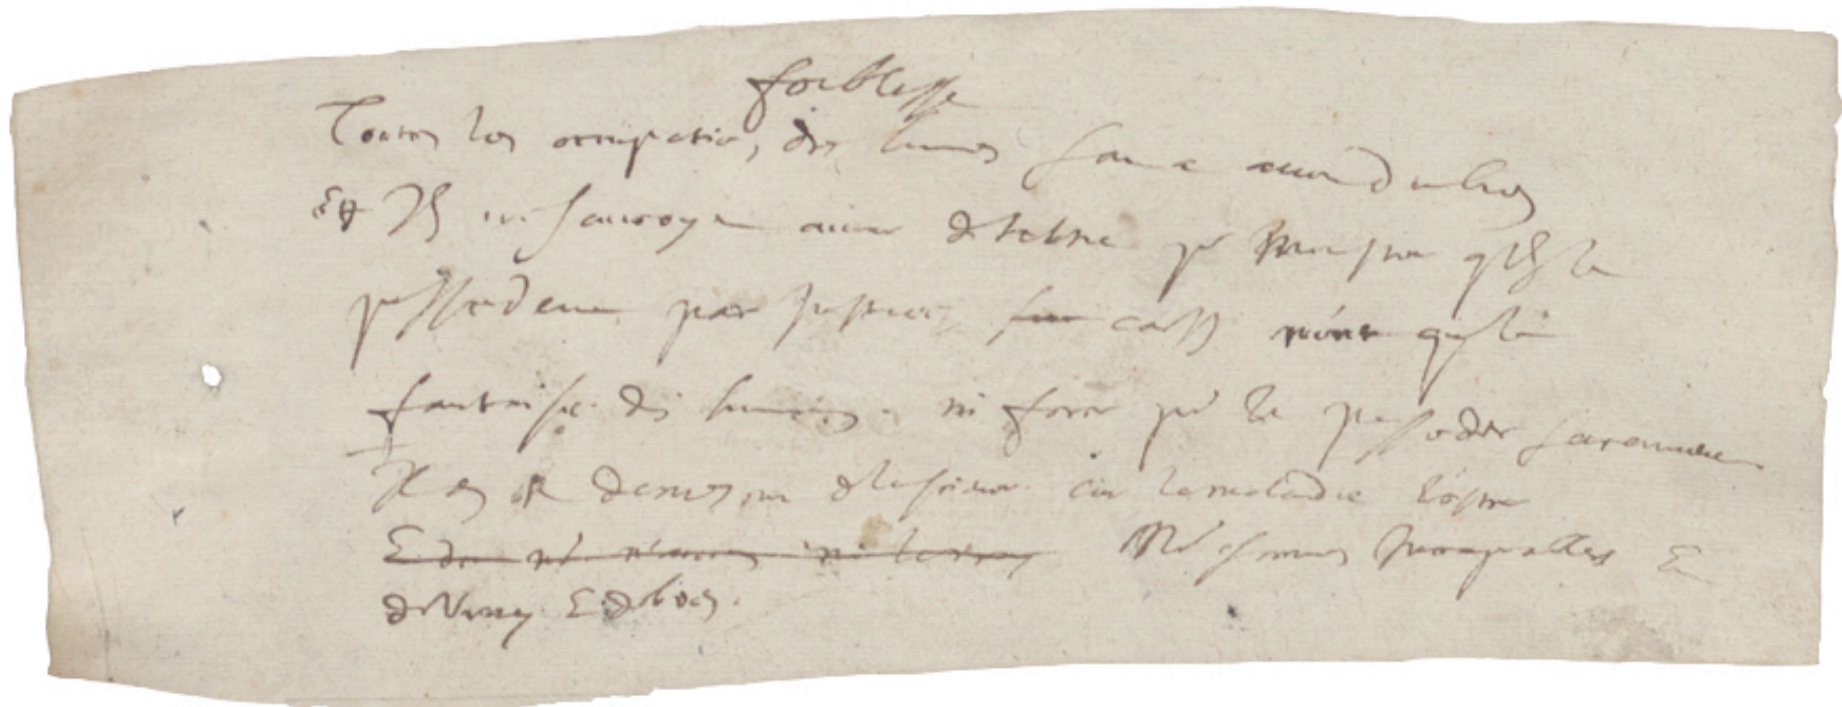 foiblesse
Toutes les occupations des hommes sont a avoir du bien
Et Ils ne sauroyent avoir de tiltre pr monstrer qu'ils le
possedent par justice, car ils n'ont que la
fantaisie des hommes, ni force pr le posseder seurement
Il en est de mesme de la science car la maladie l'oste
Ns sommes Incapables Et
de Vray Et de bien.